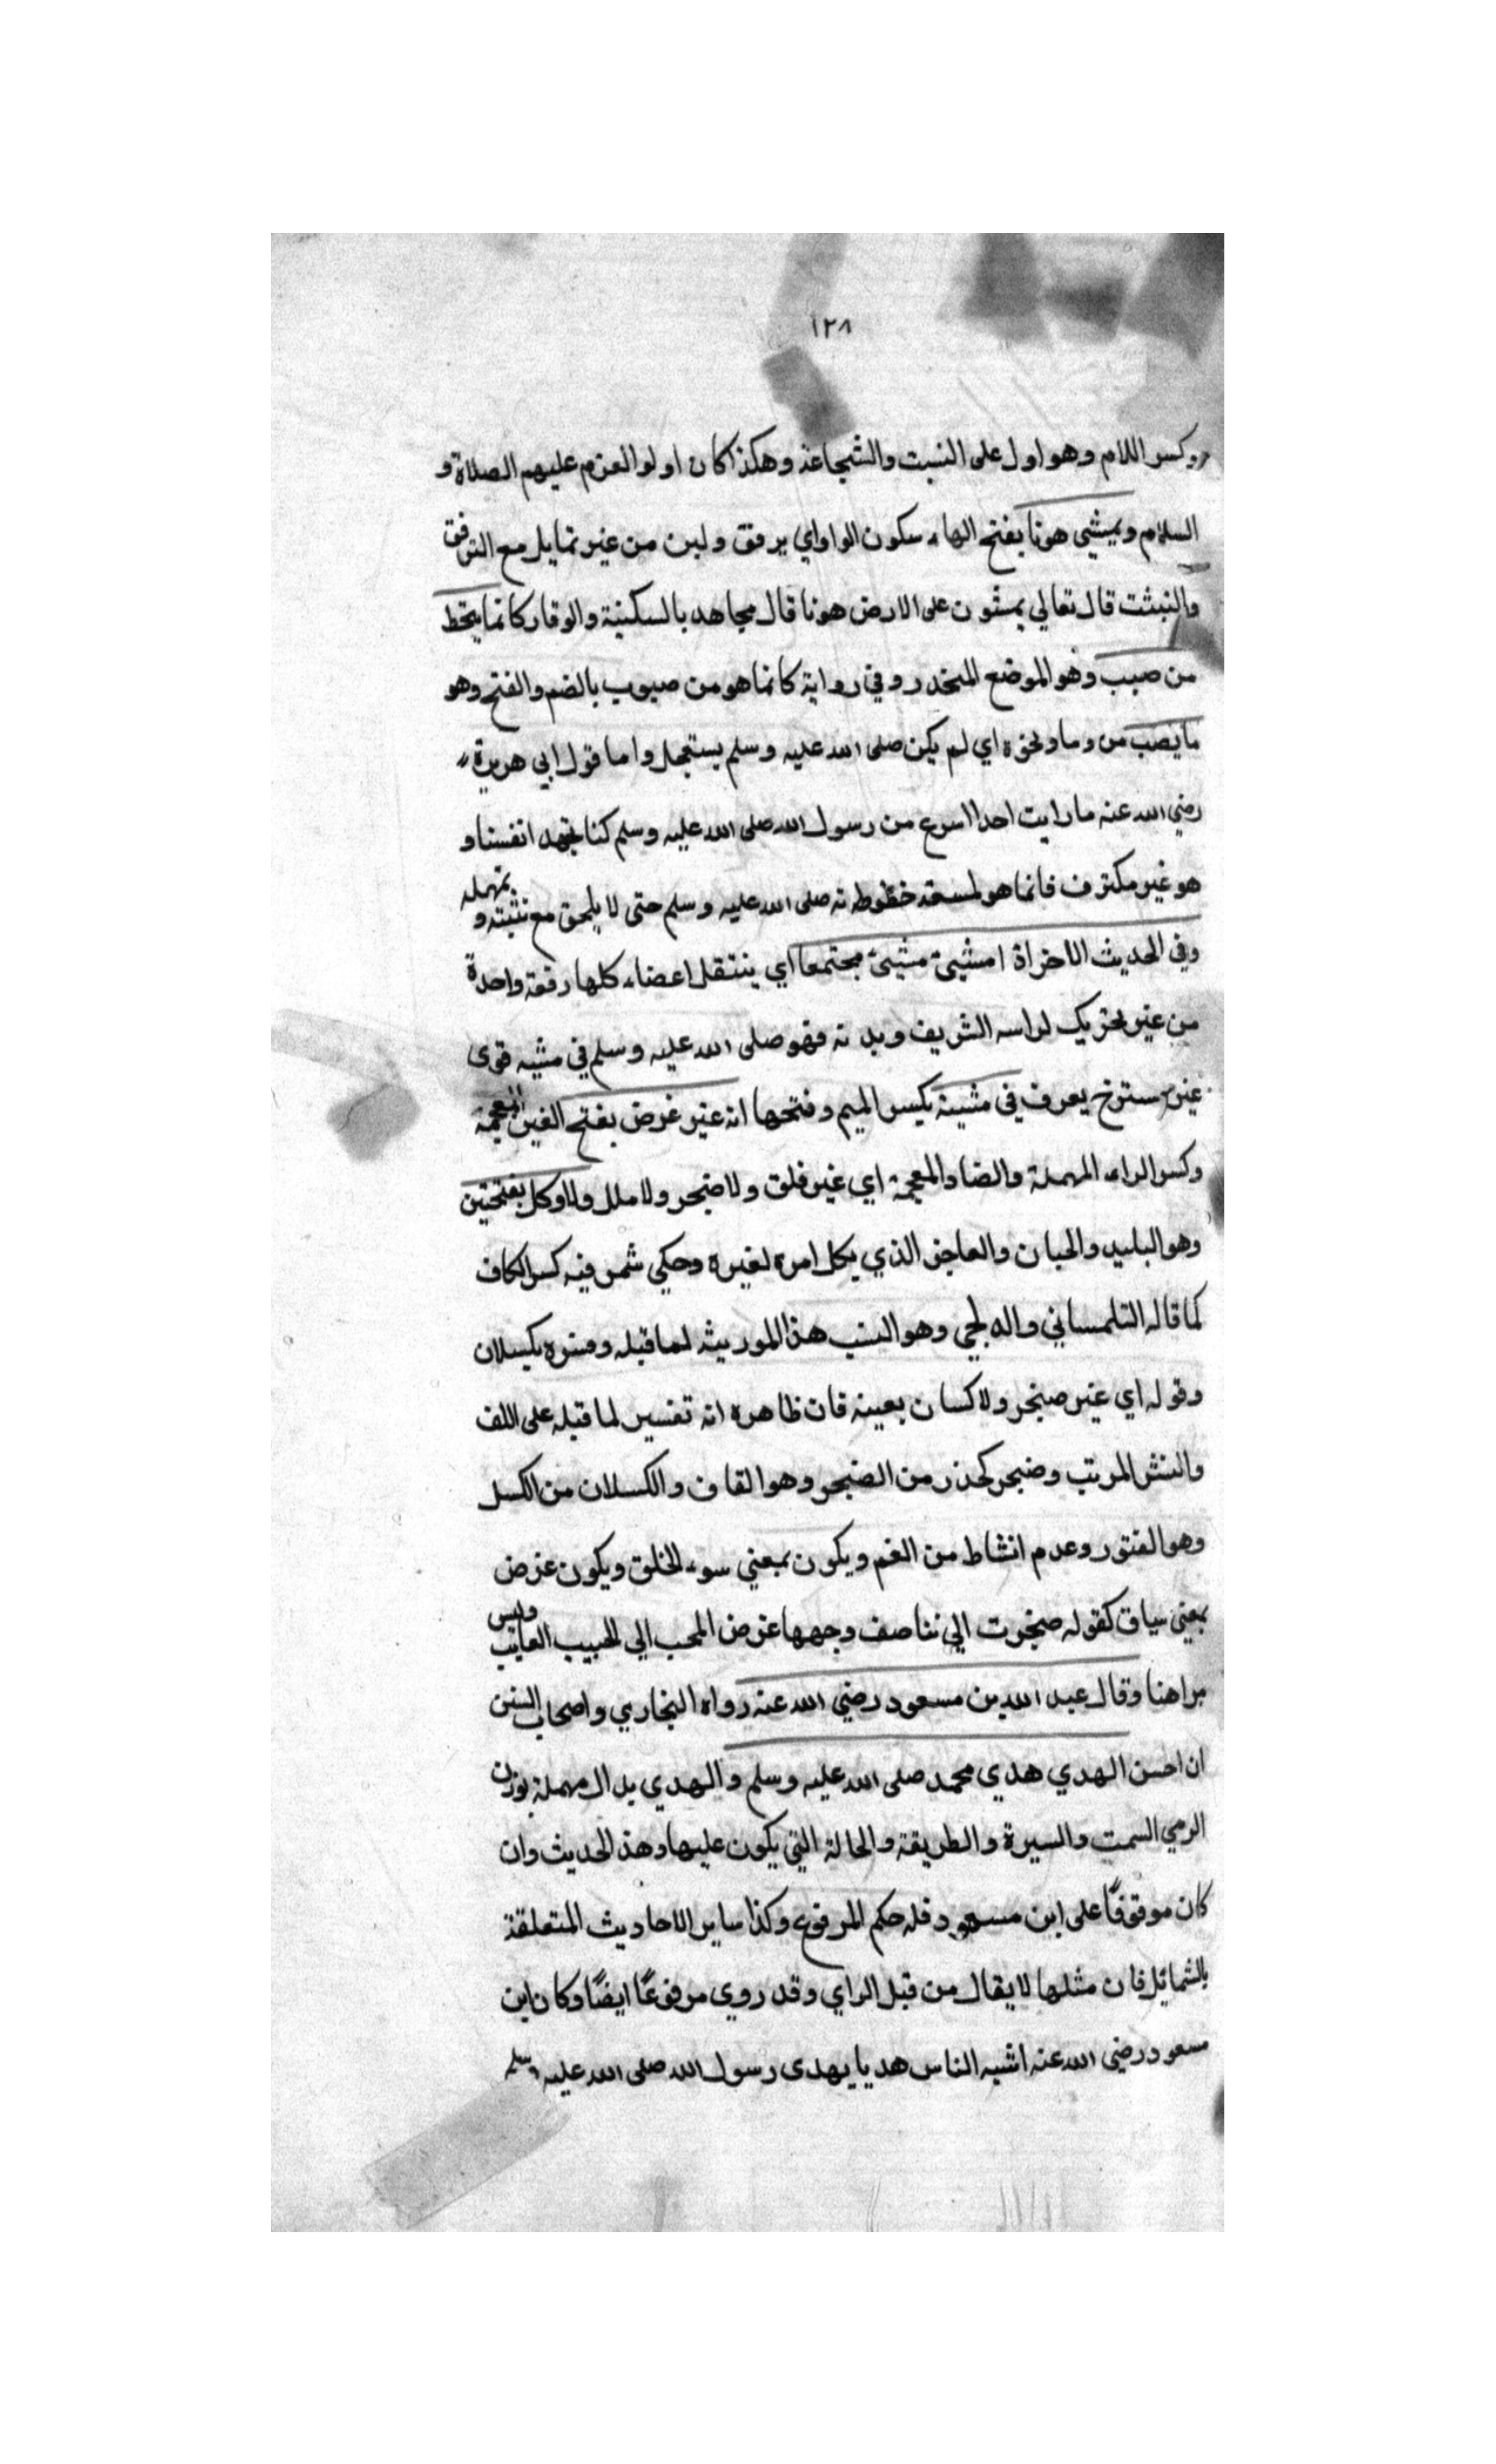 ١٢٨
وكسر اللام وهو اول على النسبت والشجاعة وهكذا كان اولو العزم عليهم الصلاة و
السلام ويمشي هونا بفتح الهاء سكون الواو اي برفق ولين من غير تمايل مع الترفق
والتبثت قال تعالي يمشون على الارض هونا قال مجاهد بالسكينة والوقار كانما ينحط
من صبب وهو الموضع المنحدر وفي رواية كانما هو من صبوب بالضم والفتح وهو
ما يصب من وماونحوه اي لم يكن صلى الله عليه وسلم يستعجل واما قول ابي هريرة
رضي الله عنه ما رايت احدا اسرع من رسول الله صلى الله عليه وسلم كنا نجهد انفسنا و
هو غير مكترف فانما هو لسعة خطوطه ته صلى الله عليه وسلم حتى لا يلحق مع تثبته و تمهله
وفي الحديث الاخر اذا مشيئ مشيئ مجتمعا اي ينتقل اعضاء كلها رفعة واحدة
من غير تحريك لراسه الشريف وبدنه فهو صلى الله عليه وسلم في مشيه قوى
غير مسترخ يعرف في مشيته بكسر الميم وفتحها انه غير غرض بفتح الغين المعجمة
وكسر الراء المهملة والضاد المعجمة اي غير قلق ولا ضجر ولا ملل ولا وكل بفتحتين
وهو البليد والجبان والعاجز الذي يكل امره لغيره وحكي شمر فيه كسر الكاف
كما قاله التلمساني واله لجي وهو النسب هذا الموريثه لما قبله وفسره بكسلان
وقوله اي غير ضجر ولا كسان بعينه فان ظاهره انه تفسير لما قبله على اللف
والنشر المرتب وضجر كحذر من الضجر وهو القاف والكسلان من الكسل
وهو الفتور وعدم انشاط من الغم ويكون بمعني سوء الخلق ويكون غرض
بمعني سياق كقوله ضجرت الي تناصف وجهها غرض المحب الي الحبيب الغايب وليس
مراهنا وقال عبد الله بن مسعود رضي الله عنه رواه البخاري واصحاب السنن
ان احسن الهدي هدي محمد صلى الله عليه وسلم والهدي بدال مهملة بوزن
الرمي السمت والسيرة والطريقة والحالة التي يكون عليها وهذا الحديث وان
كان موقوفًا على ابن مسعود فله حكم المرفوع وكذا ساير الاحاديث المتعلقة
بالشمائل فان مثلها لا يقال من قبل الراي وقد روي مرفوعًا ايضًا وكان ابن
مسعود رضي الله عنه اشبه الناس هديا يهدى رسول الله صلى الله عليه وسلم